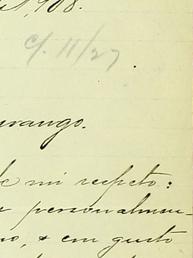 1908.
c/. 11/27
urango.
de mi respeto:
personalmen-
no, & con gusto